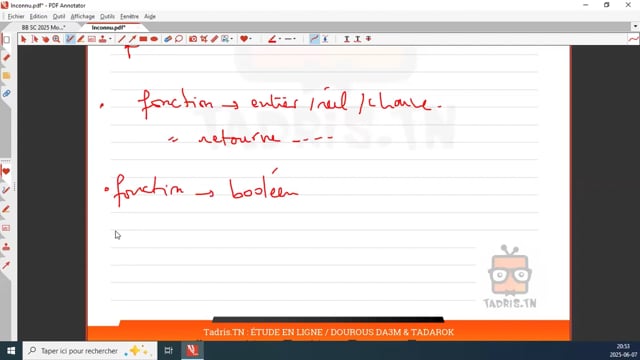 Inconnu.pdf* - PDF Annotator
Fichier Edition Page Outil Affichage Fenêtre Aide
BB SC 2025 Mo... Inconnu.pdf*
TADRIS.TN
• fonction → entier / réel / chaine.
" retourne ----
• fonction → booléen
TADRIS.TN
Tadris.TN : ÉTUDE EN LIGNE / DOUROUS DA3M & TADAROK
Taper ici pour rechercher
20:53
2025-06-07